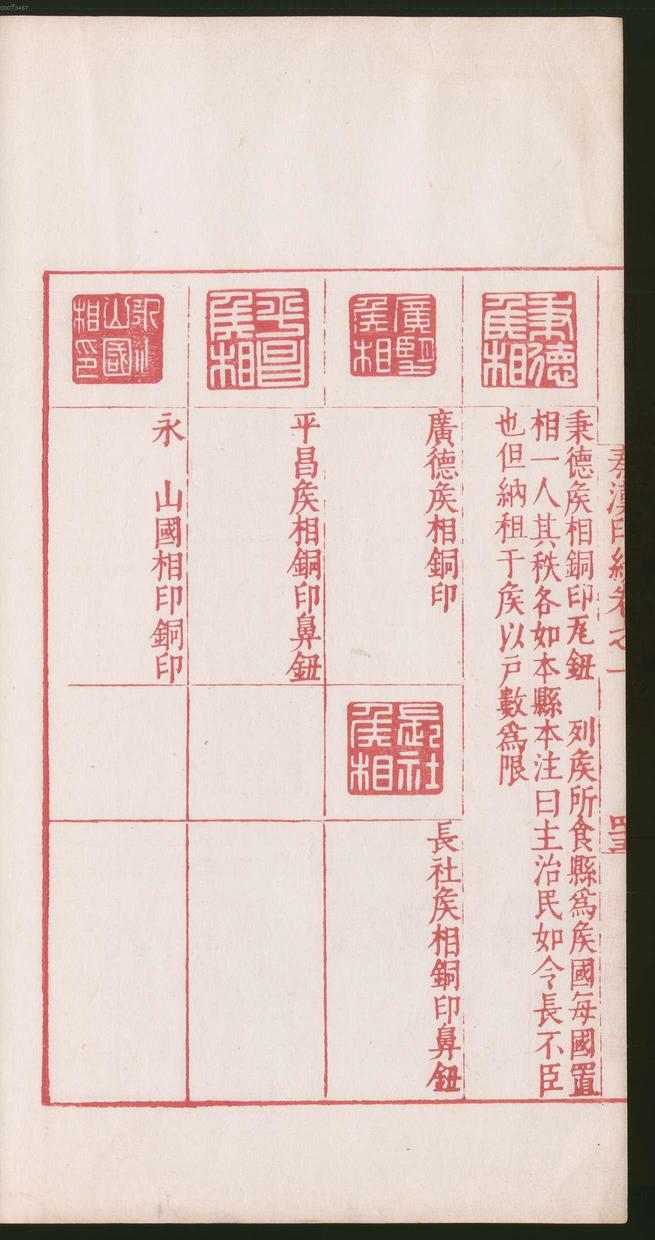 00073467
秦漢印統卷之一
四五
秉德
矦相
秉德矦相銅印瓦鈕　列矦所食縣爲矦國每國置
相一人其秩各如本縣本注曰主治民如令長不臣
也但納租于矦以戸數爲限
矦相
廣德矦相銅印
長社
矦相
長社矦相銅印鼻鈕
平昌
矦相
平昌矦相銅印鼻鈕
山國
相印
永　山國相印銅印